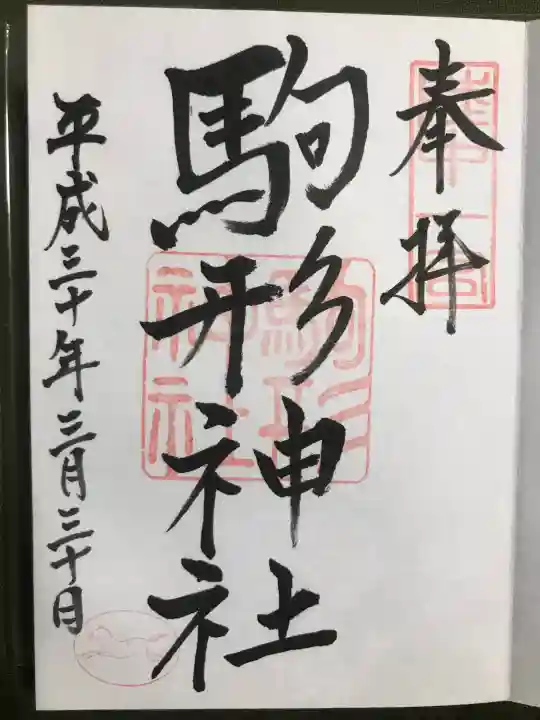 奉拝
駒形神社
駒形神社
平成三十年三月三十日